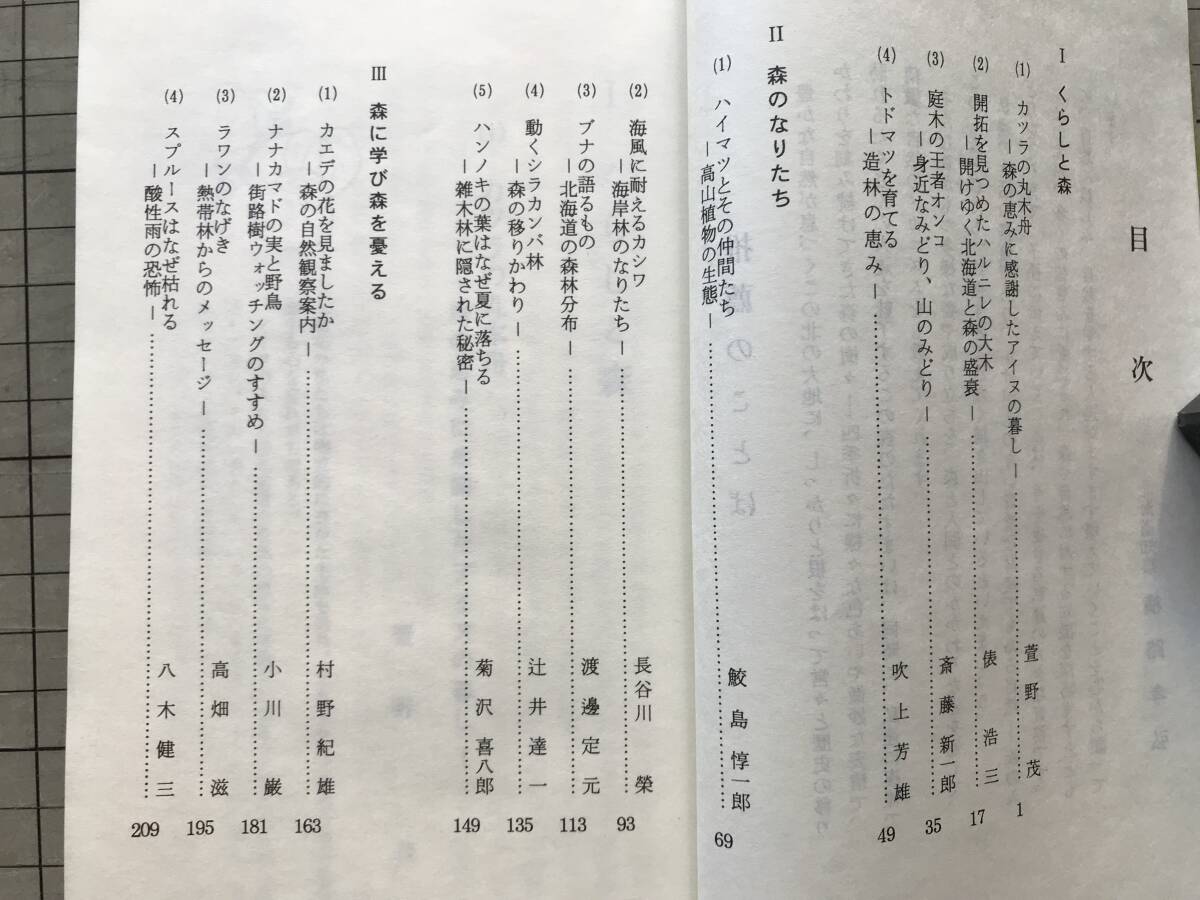 目次
Ⅰ くらしと森
(1) カツラの丸木舟
―森の恵みに感謝したアイヌの暮し― 萱野 茂 1
(2) 開拓を見つめたハルニレの大木
―開けゆく北海道と森の盛衰― 俵 浩三 17
(3) 庭木の王者オンコ
―身近なみどり、山のみどり― 斎藤新一郎 35
(4) トドマツを育てる
―造林の恵み― 吹上芳雄 49
Ⅱ 森のなりたち
(1) ハイマツとその仲間たち
―高山植物の生態― 鮫島惇一郎 69
(2) 海風に耐えるカシワ
―海岸林のなりたち― 長谷川 榮 93
(3) ブナの語るもの
―北海道の森林分布― 渡邊定元 113
(4) 動くシラカンバ林
―森の移りかわり― 辻井達一 135
(5) ハンノキの葉はなぜ夏に落ちる
―雑木林に隠された秘密― 菊沢喜八郎 149
Ⅲ 森に学び森を憂える
(1) カエデの花を見ましたか
―森の自然観察案内― 村野紀雄 163
(2) ナナカマドの実と野鳥
―街路樹ウォッチングのすすめ― 小川 巌 181
(3) ラワンのなげき
―熱帯林からのメッセージ― 高畑 滋 195
(4) スプルースはなぜ枯れる
―酸性雨の恐怖― 八木健三 209